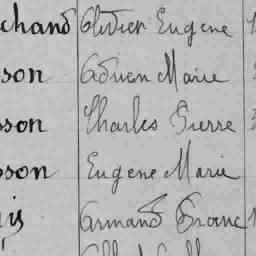 chand Olivier Eugene
son Adrien Marie
sson Charles Pierre
sson Eugene Marie
Armand